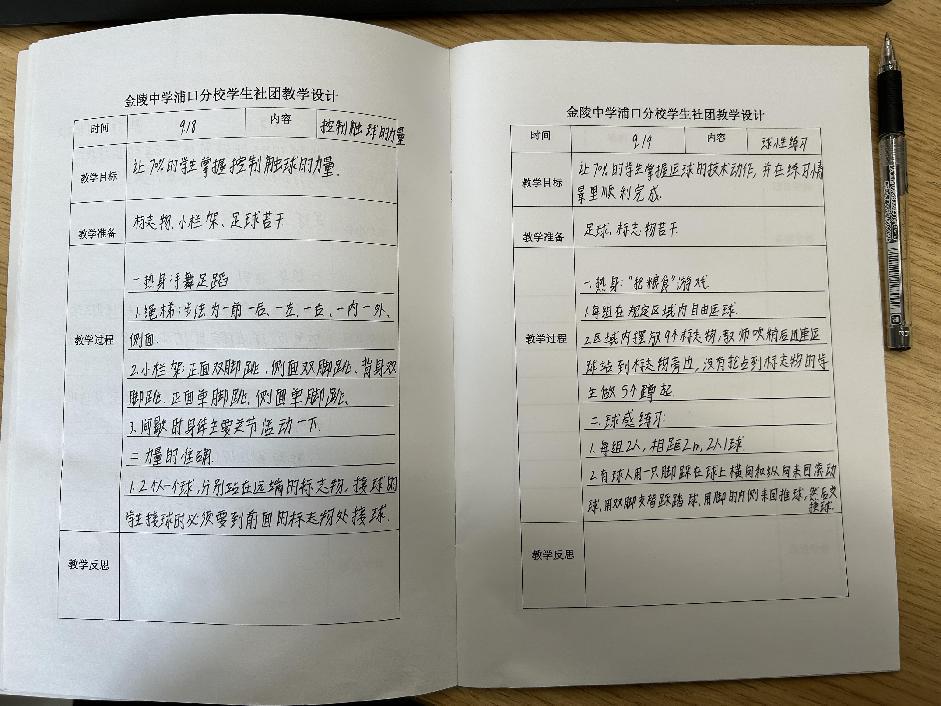 金陵中学浦口分校学生社团教学设计
时间 9.18 内容 控制触球的力量
教学目标 让70%的学生掌握控制触球的力量.
教学准备 标志物、小栏架、足球若干
教学过程
一.热身:手舞足蹈
1.绳梯:步法为一前一后、一左、一右、一内一外、
侧面.
2.小栏架:正面双脚跳、侧面双脚跳、背身双
脚跳、正面单脚跳、侧面单脚跳、
3.间歇时身体主要关节活动一下.
二.力量的准确.
1.2个人一个球,分别站在远端的标志物,接球的
学生接球时必须要到前面的标志物处接球.
教学反思
金陵中学浦口分校学生社团教学设计
时间 9.19 内容 球性练习
教学目标 让70%的学生掌握运球的技术动作,并在练习情
景里顺利完成.
教学准备 足球、标志物若干
教学过程
一.热身:“抢粮食”游戏
1.每组在规定区域内自由运球.
2.区域内摆放9个标志物,教师吹哨后迅速运
球站到标志物旁边,没有抢占到标志物的学
生做5个蹲起.
二.球感练习:
1.每组2人,相距2m,2人1球.
2.有球人用一只脚踩在球上横向和纵向来回滚动
球,用双脚交替跃踏球,用脚的内侧来回推球,然后交
换球.
教学反思